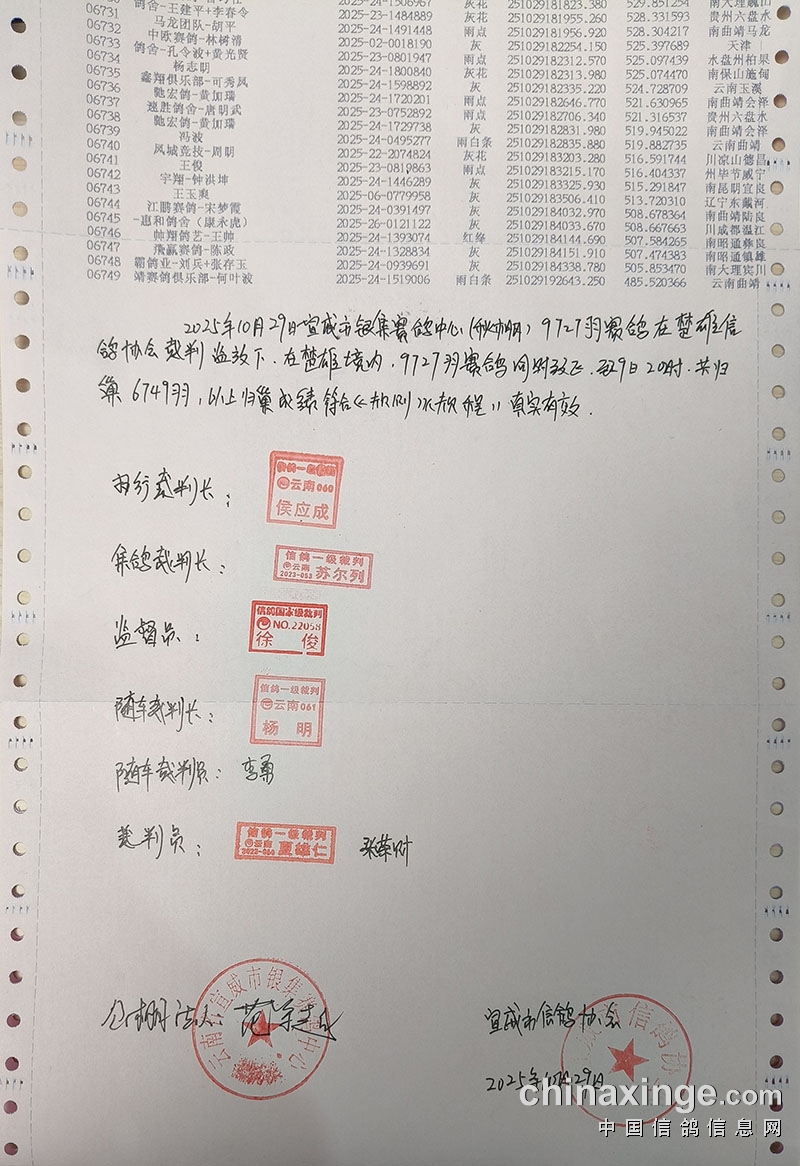 鸽舍-王建平+李春令 2025-23-1484889 灰花 251029181823.380 529.851254
06731 马龙团队-胡平 2025-24-1491448 雨点 251029181955.260 528.331593 贵州六盘水
06732 中欧赛鸽-林树清 2025-02-0018190 灰 251029181956.920 528.304217 南曲靖马龙
06733 鸽舍-孔令波+黄光贤 2025-23-0801947 雨点 251029182254.150 525.397689 天津
06734 杨志明 2025-24-1800840 灰花 251029182312.570 525.097439 水盘州柏果
06735 鑫翔俱乐部-可秀凤 2025-24-1598892 灰 251029182313.980 525.074470 南保山施甸
06736 驰宏鸽-黄加瑞 2025-24-1720201 雨点 251029182335.220 524.728709 云南玉溪
06737 速胜鸽舍-唐明武 2025-23-0752892 雨点 251029182646.770 521.630965 南曲靖会泽
06738 驰宏鸽-黄加瑞 2025-24-1729738 灰 251029182706.340 521.316537 贵州六盘水
06739 冯波 2025-24-0495277 雨白条 251029182831.980 519.945022 南曲靖会泽
06740 凤城竞技-周明 2025-22-2074824 灰花 251029182835.880 519.882735 云南曲靖
06741 王俊 2025-23-0819863 雨点 251029183203.280 516.591744 川凉山德昌
06742 宇翔-钟洪坤 2025-24-1446289 灰 251029183215.170 516.404337 州毕节威宁
06743 王玉爽 2025-06-0779958 灰 251029183325.930 515.291847 南昆明宜良
06744 江鹏赛鸽-宋梦霞 2025-24-0391497 灰 251029183506.410 513.720310 辽宁东戴河
06745 -惠和鸽舍（康永虎） 2025-26-0121122 灰 251029184032.970 508.678364 南曲靖陆良
06746 帅翔鸽艺-王帅 2025-24-1393074 红绛 251029184033.670 508.667663 川成都温江
06747 飛赢赛鸽-陈政 2025-24-1328834 灰 251029184144.690 507.584265 南昭通彝良
06748 霸鸽业-刘兵+张存玉 2025-24-0939691 灰 251029184151.910 507.474383 南昭通镇雄
06749 靖赛鸽俱乐部-何叶波 2025-24-1519036 雨白条 251029184338.780 505.853470 南大理宾川
251029192643.250 485.520366 云南曲靖
2025年10月29日宣威市银集赛鸽中心（秋棚）9727羽赛鸽在楚雄信
鸽协会裁判监放下．在楚雄境内，9727羽赛鸽同时放飞．至29日20时．共归
巢6749羽，以上归巢成绩符合《规则》《规程》真实有效．
执行裁判长：
信鸽一级裁判
云南060
侯应成
集鸽裁判长：
信鸽一级裁判
云南
2023-053 苏尔列
监督员：
信鸽国家级裁判
NO.22058
徐俊
随车裁判长：
信鸽一级裁判
云南061
杨明
随车裁判员：李勇
裁判员：
信鸽一级裁判
云南
夏雄仁
张荣财
公棚法人
云南省宣威市银集赛鸽中心
宣威市信鸽协会
2025年10月29日
chinaxinge.com
中国信鸽信息网